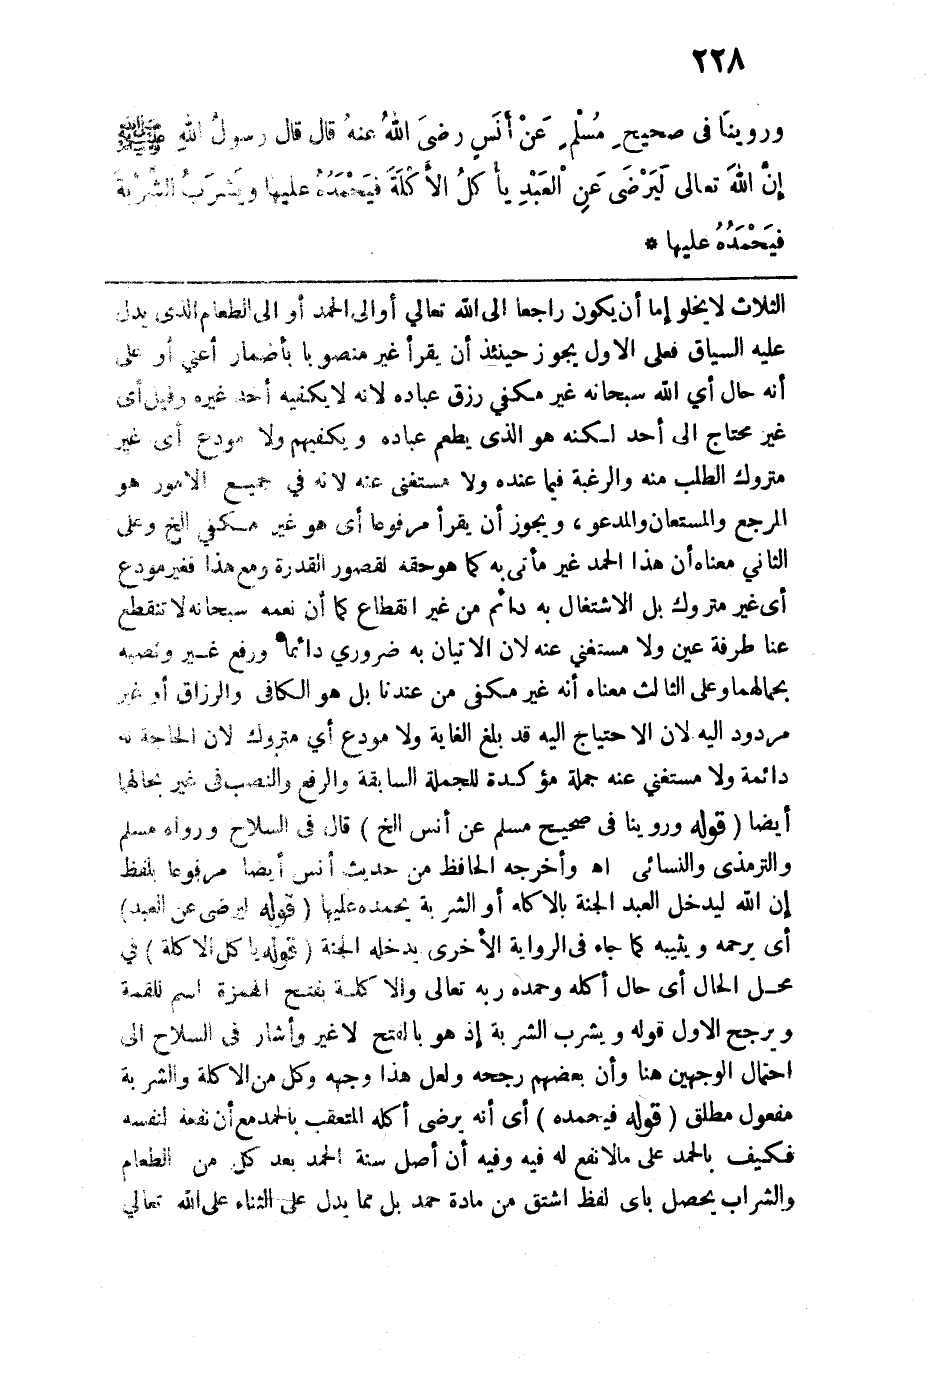 ٢٢٨
وروينا فى صحيحِ مُسْلمٍ عَنْ أنَسٍ رضىَ اللهُ عنهُ قال قال رسولُ اللهِ ﷺ
إنَّ اللهَ تعالى لَيَرْضَى عَنِ الْعَبْدِ يأْ كلُ الأَكْلَةَ فَيَحْمَدُهُ عليها ويَشرَبُ الشَّرْبةَ
فيَحْمَدُهُ عليها *
الثلاث لايخلو إما أن يكون راجعا الى الله تعالي أو الى الحمد أو الى الطعام الذى يدل
عليه السياق فعلى الاول يجوز حينئذ أن يقرأ غير منصوبا بأضمار أعني أو على
أنه حال أي الله سبحانه غير مكفي رزق عباده لانه لايكفيه أحد غيره وقيل أى
غير محتاج الى أحد لكنه هو الذى يطعم عباده ويكفيهم ولا مودع أى غير
متروك الطلب منه والرغبة فيما عنده ولا مستغنى عنه لانه في جميع الامور هو
المرجع والمستعان والمدعو ، ويجوز أن يقرأ مرفوعا أى هو غير مكفي الخ وعلى
الثاني معناه أن هذا الحمد غير مأتى به كما هو حقه لقصور القدرة ومع هذا فغير مودع
أى غير متروك بل الاشتغال به دائم من غير انقطاع كما أن نعمه سبحانه لا تنقطع
عنا طرفة عين ولا مستغني عنه لان الاتيان به ضروري دائما ورفع غير ونصبه
بحالهما وعلى الثالث معناه أنه غير مكفى من عندنا بل هو الكافى والرزاق أو غير
مردود اليه لان الاحتياج اليه قد بلغ الغاية ولا مودع أي متروك لان الحاجة له
دائمة ولا مستغني عنه جملة مؤكدة للجملة السابقة والرفع والنصب فى غير بحالها
أيضا ( قوله وروينا فى صحيح مسلم عن أنس الخ ) قال فى السلاح ورواه مسلم
والترمذى والنسائى اه وأخرجه الحافظ من حديث أنس أيضا مرفوعا بلفظ
إن الله ليدخل العبد الجنة بالاكله أو الشربة يحمده عليها ( قوله ليرضى عن العبد)
أى يرحمه ويثيبه كما جاء فى الرواية الأخرى يدخله الجنة ( قوله يا كل الاكلة ) في
محل الحال أى حال أكله وحمده ربه تعالى والاكلة بفتح الهمزة اسم للقمة
ويرجح الاول قوله ويشرب الشربة إذ هو بالفتح لاغير وأشار فى السلاح الى
احتمال الوجهين هنا وأن بعضهم رجحه ولعل هذا وجهه وكل من الاكلة والشربة
مفعول مطلق ( قوله فيحمده ) أى أنه يرضى أكله المتعقب بالحمد مع أن نفعه لنفسه
فكيف بالحمد على مالانفع له فيه وفيه أن أصل سنة الحمد بعد كل من الطعام
والشراب يحصل باى لفظ اشتق من مادة حمد بل مما يدل على الثناء على الله تعالي